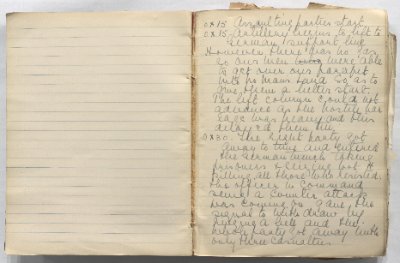 0815 Assaulting parties start
0815 Artillery begins to lift to
German support line
However there was no gas
so our men were able
to get over our parapet
into no mans land so as to
give them a better start.
The left column could not
advance as the hostile bar
rage was heavy and this
delayed them till
0830. The right party got
away to time and entered
the German trench taking
prisoners & clearing out &
killing all those who resisted
the officer in command
a counter attack
was coming on gave the
signal to withdraw by
and the
whole party got away with
only three casualties